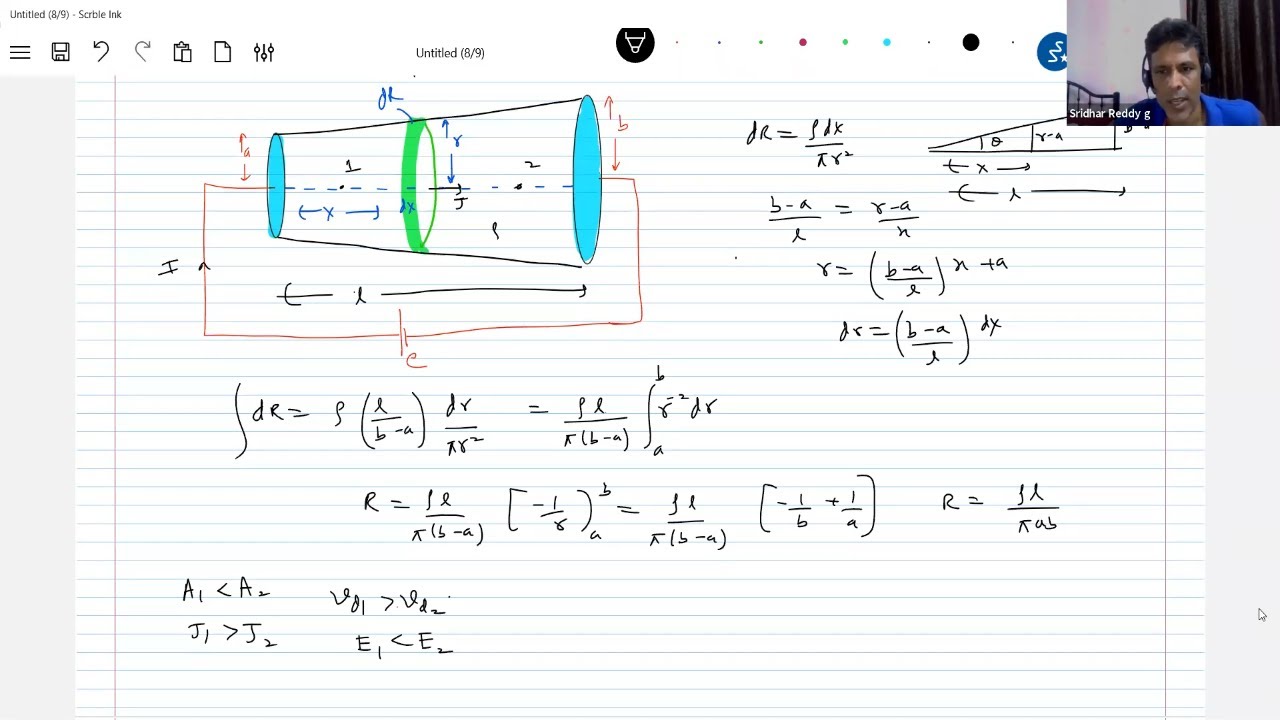 Untitled (8/9) - Scrble Ink
Untitled (8/9)
Sridhar Reddy g
dR
a
r
b
1
2
x
dx
J
ρ
I
l
dR = ρdx/πr²
θ
r-a
x
l
(b-a)/l = (r-a)/x
r = ((b-a)/l) x + a
dr = ((b-a)/l) dx
∫dR = ρ (l/(b-a)) dr/πr² = ρl/π(b-a) ∫ₐᵇ r⁻² dr
R = ρl/π(b-a) [-1/r]ₐᵇ = ρl/π(b-a) [-1/b + 1/a] R = ρl/πab
A₁ < A₂ v_d₁ > v_d₂
J₁ > J₂ E₁ < E₂